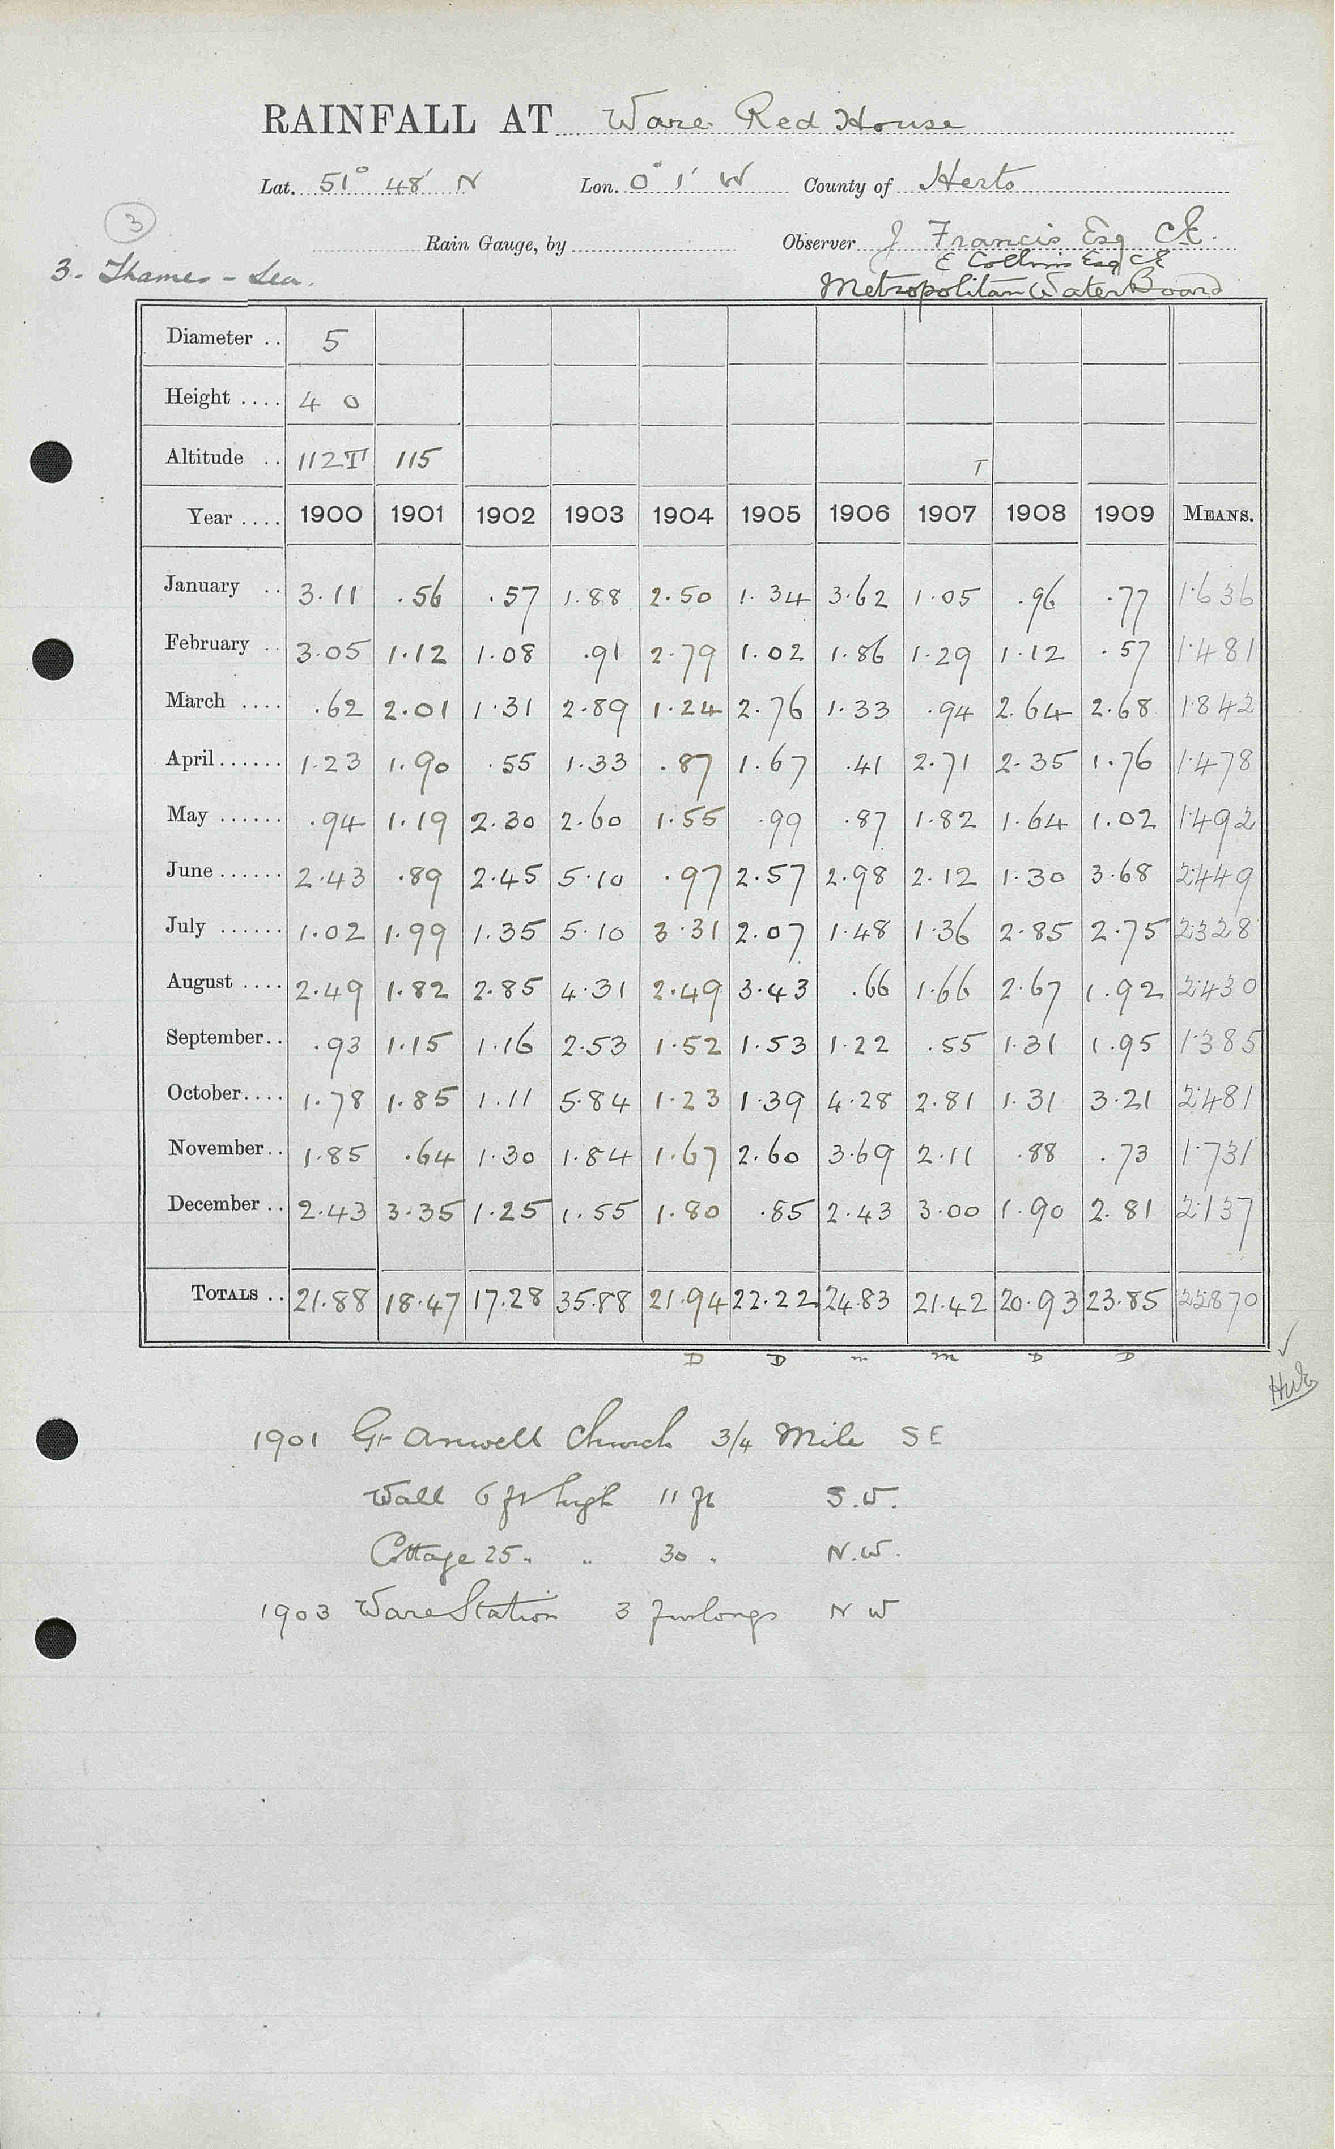 RAINFALL AT Ware Red House
Lat. 51° 48' N Lon. 0° 1' W County of Herts
3
Rain Gauge, by Observer J Francis Esq CE.
E Collins Esq CE
3. Thames - Lea.
Metropolitan Water Board
Diameter .. 5
Height .... 4 0
Altitude .. 112T 115 T
Year .... 1900 1901 1902 1903 1904 1905 1906 1907 1908 1909 MEANS.
January .. 3.11 .56 .57 1.88 2.50 1.34 3.62 1.05 .96 .77 1.636
February .. 3.05 1.12 1.08 .91 2.79 1.02 1.86 1.29 1.12 .57 1.481
March .... .62 2.01 1.31 2.89 1.24 2.76 1.33 .94 2.64 2.68 1.842
April ...... 1.23 1.90 .55 1.33 .87 1.67 .41 2.71 2.35 1.76 1.478
May ...... .94 1.19 2.30 2.60 1.55 .99 .87 1.82 1.64 1.02 1.492
June ...... 2.43 .89 2.45 5.10 .97 2.57 2.98 2.12 1.30 3.68 2.449
July ...... 1.02 1.99 1.35 5.10 3.31 2.07 1.48 1.36 2.85 2.75 2.328
August .... 2.49 1.82 2.85 4.31 2.49 3.43 .66 1.66 2.67 1.92 2.430
September .. .93 1.15 1.16 2.53 1.52 1.53 1.22 .55 1.31 1.95 1.385
October .... 1.78 1.85 1.11 5.84 1.23 1.39 4.28 2.81 1.31 3.21 2.481
November .. 1.85 .64 1.30 1.84 1.67 2.60 3.69 2.11 .88 .73 1.731
December .. 2.43 3.35 1.25 1.55 1.80 .85 2.43 3.00 1.90 2.81 2.137
TOTALS .. 21.88 18.47 17.28 35.88 21.94 22.22 24.83 21.42 20.93 23.85 22.870
D D m m D D
1901 Gt Amwell Church 3/4 Mile SE
Wall 6 ft high 11 ft S.W.
Cottage 25 " " 30 " N.W.
1903 Ware Station 3 furlongs N W